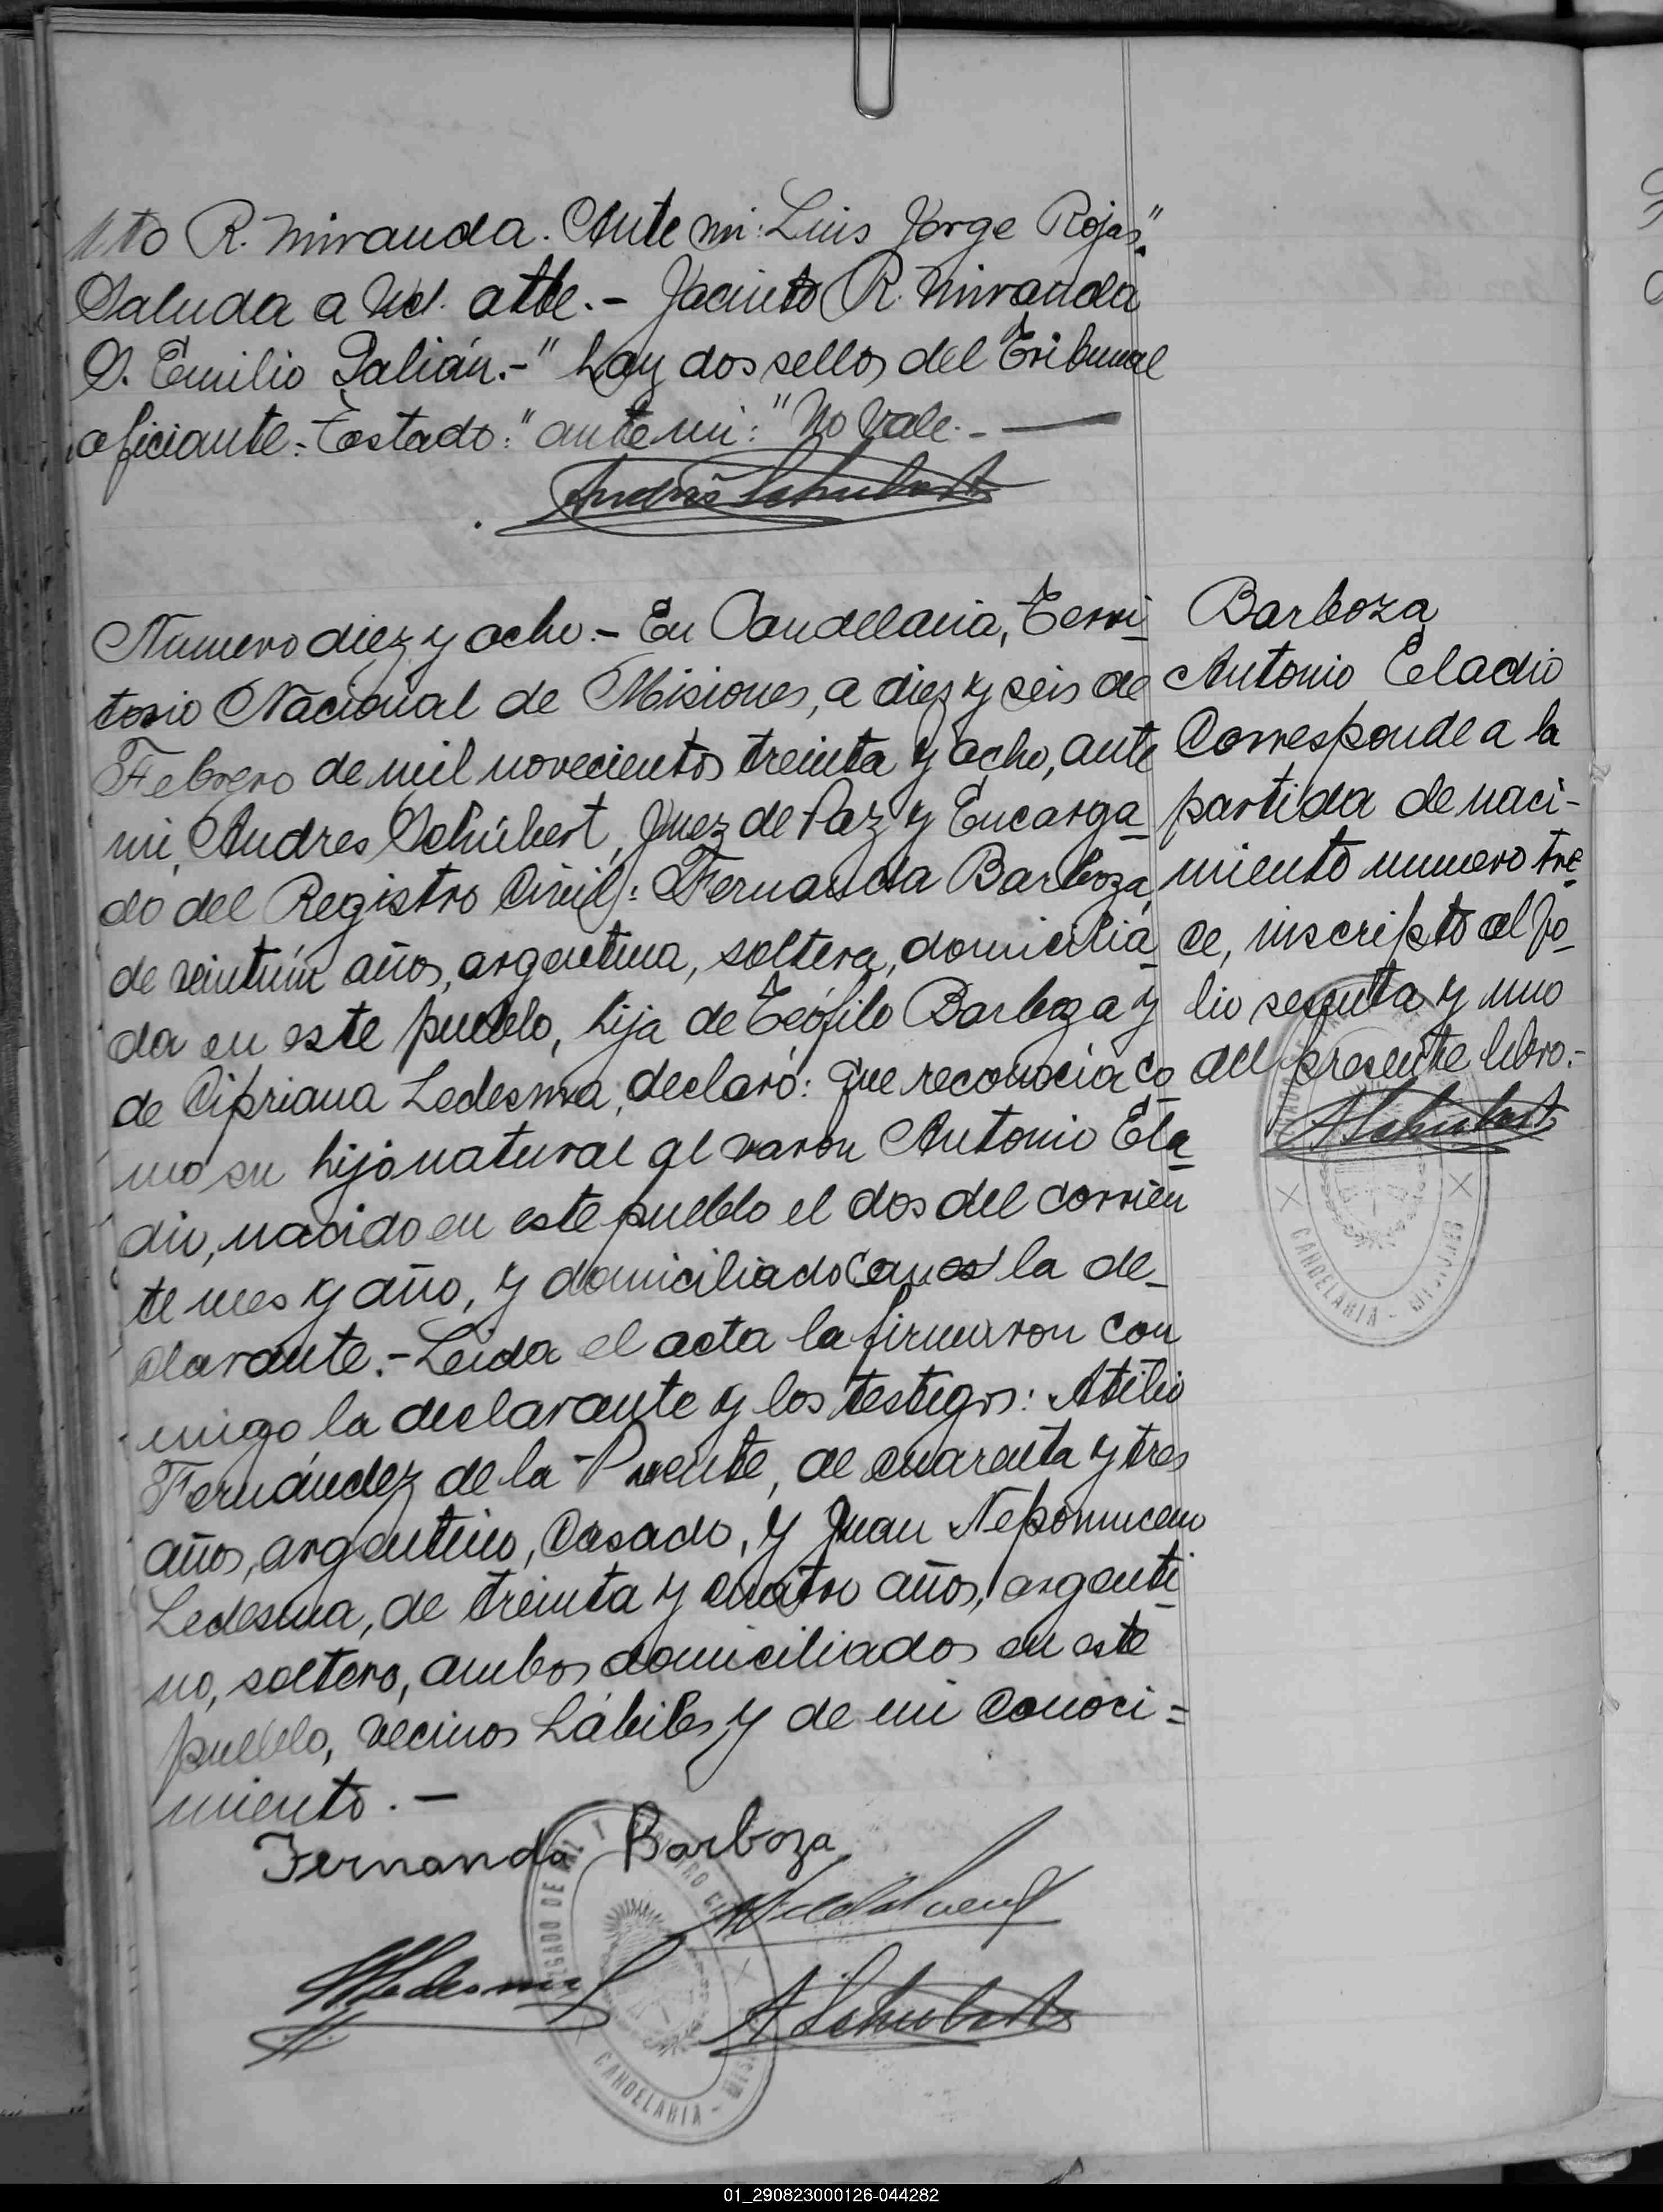 nto R. Miranda. Ante mi: Luis Jorge Rojas."
Saluda a Ud. atte.- Jacinto R. Miranda
S. Emilio Galián.-" hay dos sellos del Tribunal
oficiante.-Testado: "ante mi:" No Vale.-
Andrés Schubert
Número diez y ocho.- En Candelaria, Terri
torio Nacional de Misiones, a diez y seis de
Febrero de mil novecientos treinta y ocho, ante
mi, Andres Schubert, Juez de Paz y Encarga
do del Registro Civil: Fernanda Barboza,
de veintiún años, argentina, soltera, domicilia
da en este pueblo, hija de Teófilo Barboza y
de Cipriana Ledesma, declaró: que reconocía co
mo su hijo natural al varon Antonio Ela
dio, nacido en este pueblo el dos del corrien
te mes y año, y domiciliado la de-
clarante.-Leida el acta la firmaron con
migo la declarante y los testigos: Atilio
Fernández de la Puente, de cuarenta y tres
años, argentino, casado, y Juan Nepomuceno
Ledesma, de treinta y cuatro años, argenti
no, soltero, ambos domiciliados en este
pueblo, vecinos hábiles y de mi conoci=
miento.-
Barboza
Antonio Eladio
Corresponde a la
partida de naci-
miento numero tre
ce, inscripto al fo
lio sesenta y uno
del presente libro.-
A Schubert
CANDELARIA - MISIONES
Fernanda Barboza
Ledesma
A Schubert
JUZGADO DE PAZ Y REGISTRO CIVIL
CANDELARIA - MISIONES
01_290823000126-044282